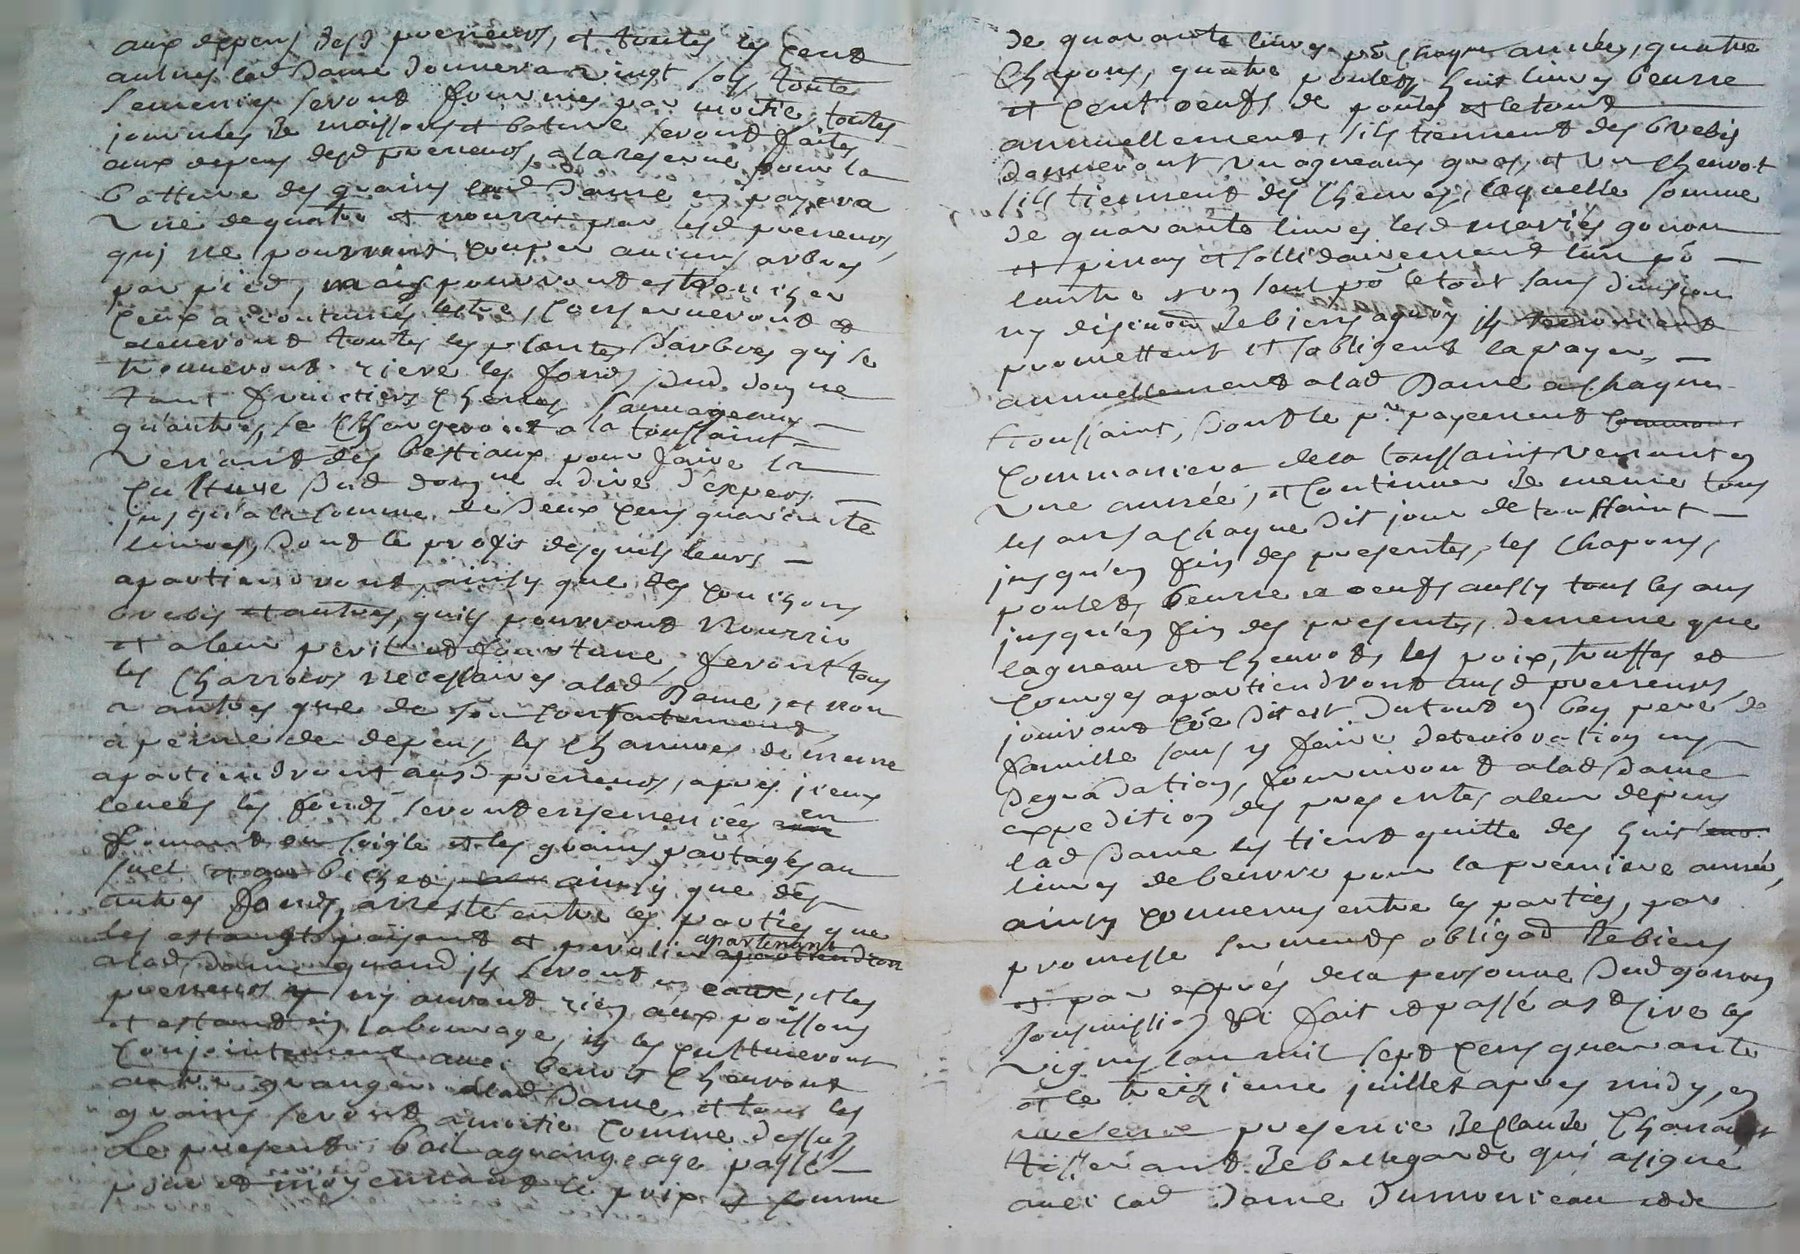 aux depens desd preneurs, et toutes les cent
autres lad Dame donnera vingt sols toute
semences seront fournies par moitié, toutes
journées de moissons et bature seront faites
aux depens desd preneurs, a la reserve pour la
batture des grains lad Dame en payera
une de quatre et nourrit par lesd preneurs,
qui ne pourront couper aucuns arbres
par pied, mais pourront estroncher
ceux accoutumés lestre, conserveront et
eleveront toutes les plantes d'arbres qui se
trouveront riere les fonds dud. domne
tant fruictiers chenes sauvageaux
qu'autres, se chargeront a la toussaint
venant des bestiaux pour faire la
culture dud domne a dire d'expers
jusqu'a la somme de deux cens quarente
livres, dont le profit desquels leurs
apartiendront, ainsy que des couchons
brebis et autres, quils pourront nourrir
et a leur peril et fourtune, feront tous
les charrois necessaires a lad Dame, et non
a autres que de son consentement
a peine de depens, les chanvres de meme
apartiendront ausd preneurs, apres iceux
levées les fonds seront ensemencées en
fromant ou seigle et les grains partagés au
suel ainsy que des
autres fonds, arresté entre les parties que
les estangts apartenant
a lad Dame quand ils seront en eaux, et les
preneurs ny auront rien aux poissons
et estant en labourage, ils les cultiveront
conjointement avec benoit chevrot
autre granger de lad Dame et tous les
grains seront a moitie comme dessus
Le present bail a grangeage passé
pour et moyennant le prix et somme
de quarante livres po chaque années, quatre
chapons, quatre poulets huit livres beurre
et cent oeufs de poules et le tout
annuellement, sils tiennent des brebis
donneront un agneaux gras, et un chevrot
sils tiennent des chevres, laquelle somme
de quarante livres lesd mariés gonon
et pinay et sollidairement l'un po
lautre un seul po le tout sans division
ny discution de biens a quoy ils renoncent
promettent et sobligent la payer
annuellement a lad Dame a chaque
toussaint, dont le pre payement
commancera de la toussaint venant en
une année, et continuer de meme tous
les ans a chaque dit jour de toussaint
jusqu'en fin des presentes, les chapons,
poulets, beurre et oeufs aussy tous les ans
jusqu'en fin des presentes, de meme que
lagneau et chevrot, les poix, truffes et
courges apartiendront ausd preneurs,
jouiront coe dit est du tout en bon pere de
famille sans y faire deterioration ny
degradation, fourniront a lad Dame
expedition des presentes a leur depens
lad Dame les tient quitte des huit
livres de beurre pour la premiere année,
ainsy convenus entre les parties, par
promesse serments obligaõ de biens
et par exprés de la personne dud gonon
soumission &a fait et passé a st Cire les
vignes lan mil sept cens quarante
et le treizieme juillet apres midy, en
presence de Claude
tisserant de bellegarde qui a signé
avec lad Dame Dumonceau et de